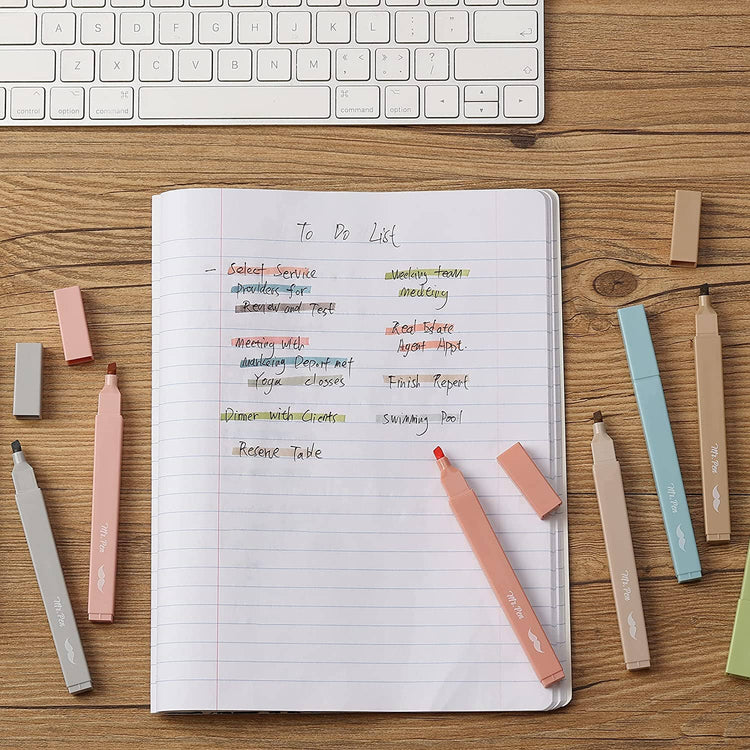 A S D F G H J K L : ; " '
Z X C V B N M < , > . ? /
control option command command option
To Do List
– Select Service
providers for
Review and Test
Meeting with
Marketing Depart met
Yoga classes
Dinner with Clients
Reserve Table
Weeking team
meeting
Real Estate
Agent Appt.
Finish Report
Swimming Pool
Mr. Pen
Mr. Pen
Mr. Pen
Mr. Pen
Mr. Pen
Mr. Pen